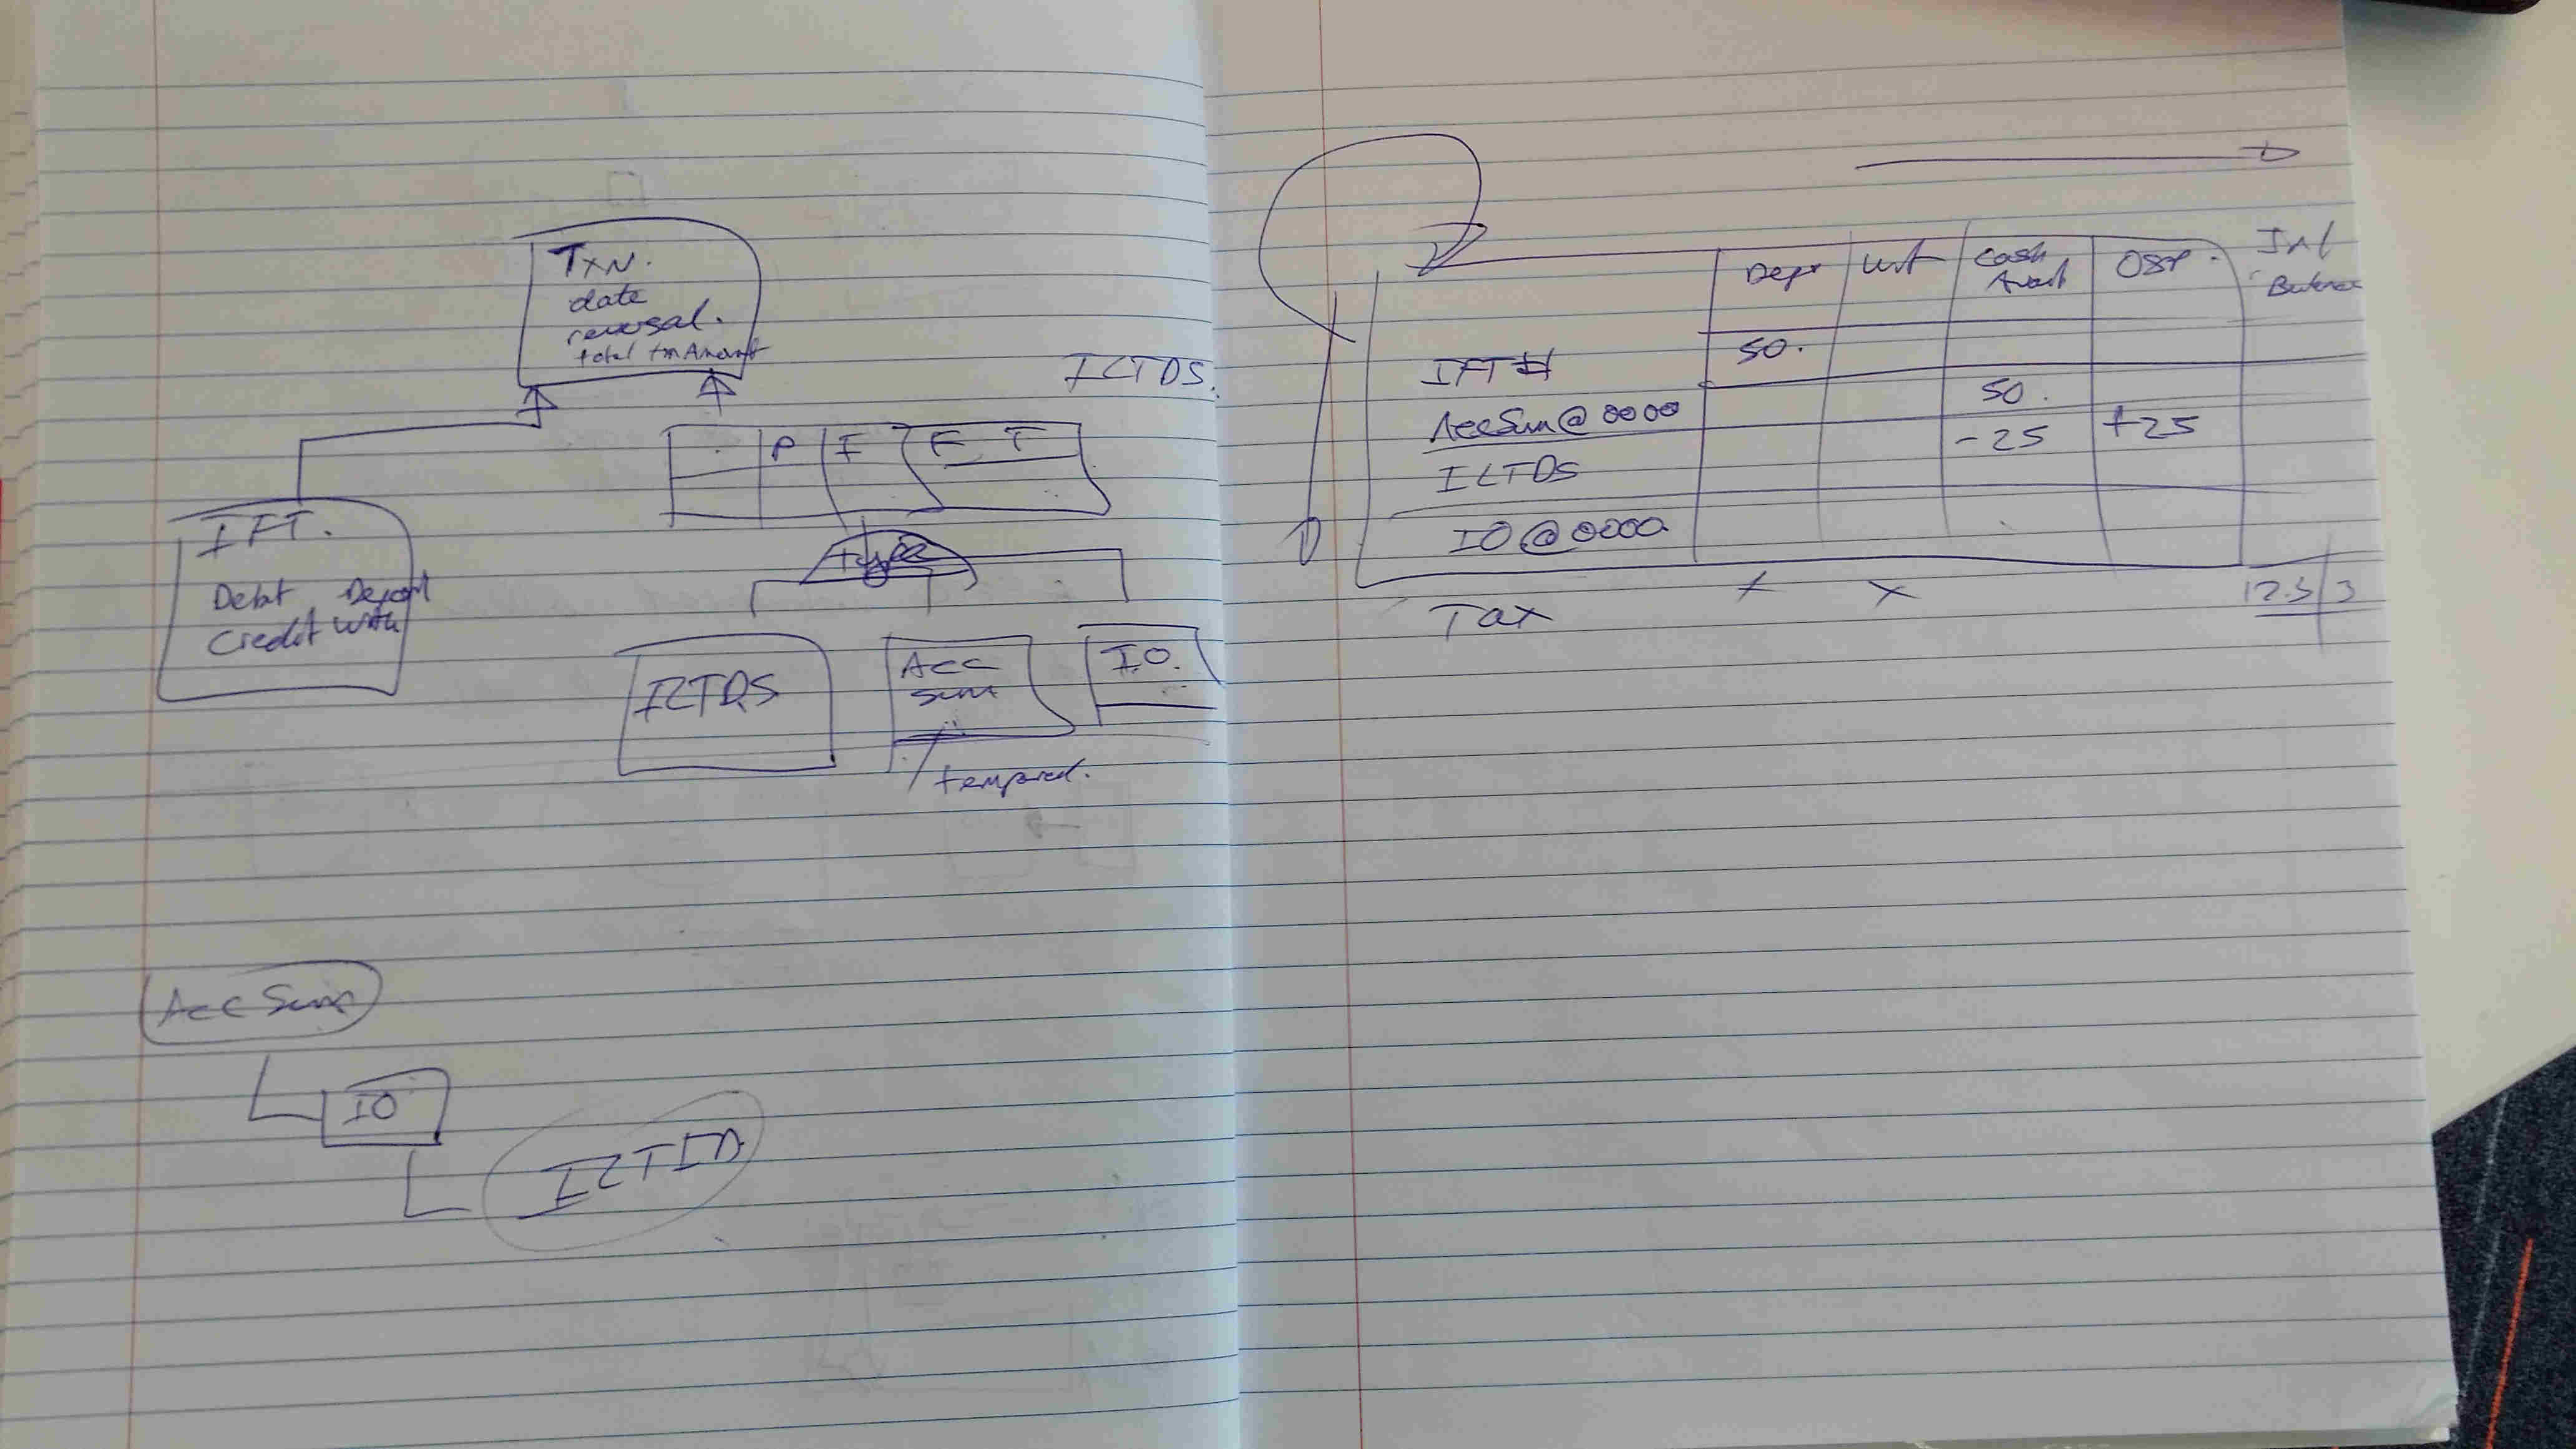 TXN.
date
reversal.
total txn Amount
ILTDS.
P F F T
IFT.
Debt Deposit
Credit With
type
ILTDS
Acc
Sum
I.O.
tempored.
Acc Sum
IO
Dept Wit Cash OSP. Int
Balance
50.
IFT #
50.
AccSum@0000
-25 +25
ILTDS
IO@0000
Tax x x 12.5 3